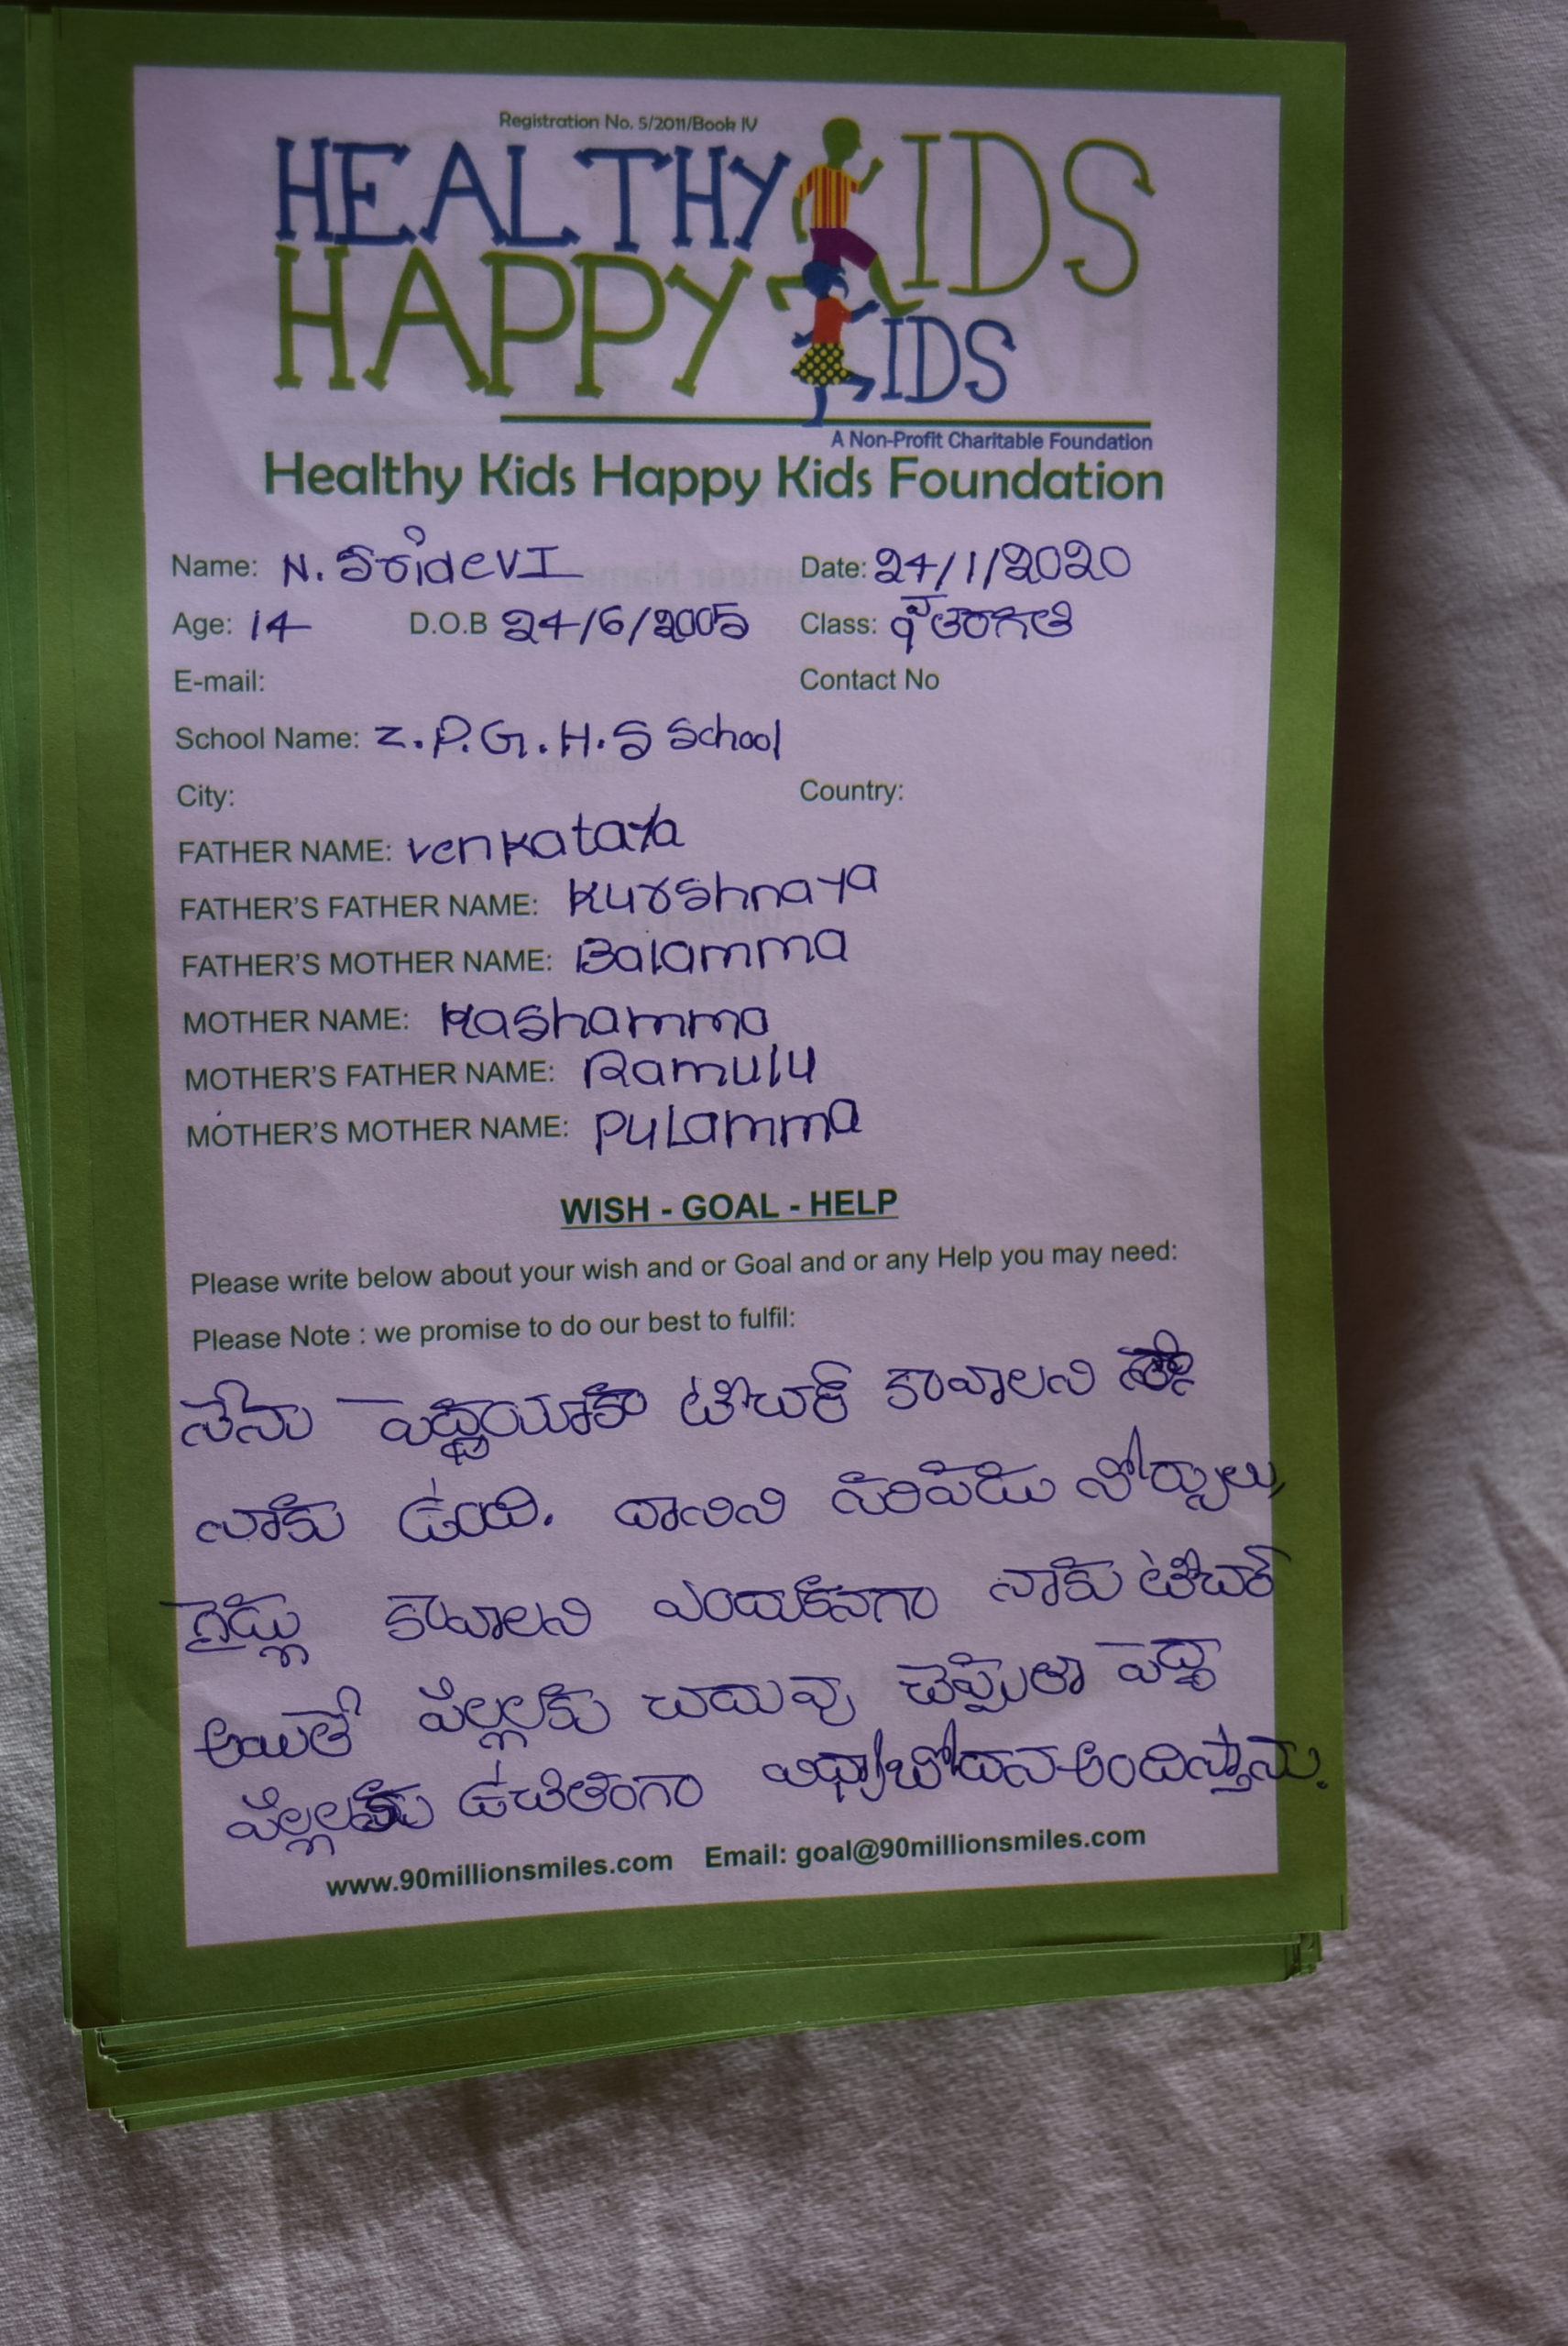 Registration No. 5/2011/Book IV
HEALTHY KIDS
HAPPY KIDS
A Non-Profit Charitable Foundation
Healthy Kids Happy Kids Foundation
Name: N. SridevI Date: 24/1/2020
Age: 14 D.O.B 24/6/2005 Class: 9వ తరగతి
E-mail: Contact No
School Name: Z.P.G.H.S School
City: Country:
FATHER NAME: venkataya
FATHER'S FATHER NAME: Kurshnaya
FATHER'S MOTHER NAME: Balamma
MOTHER NAME: Kashamma
MOTHER'S FATHER NAME: Ramulu
MOTHER'S MOTHER NAME: Pulamma
WISH - GOAL - HELP
Please write below about your wish and or Goal and or any Help you may need:
Please Note : we promise to do our best to fulfil:
నేను పెద్దయ్యాక టీచర్ కావాలని
నాకు ఉంది. దానిని సరిపడు నోర్సులు,
గైడ్లు కావాలని ఎందుకనగా నాకు టీచర్
అయితే పిల్లలకు చదువు చెప్పుతా పెద్ద
పిల్లలకు ఉచితంగా విధ్యాబోదన అందిస్తాను.
www.90millionsmiles.com Email: goal@90millionsmiles.com